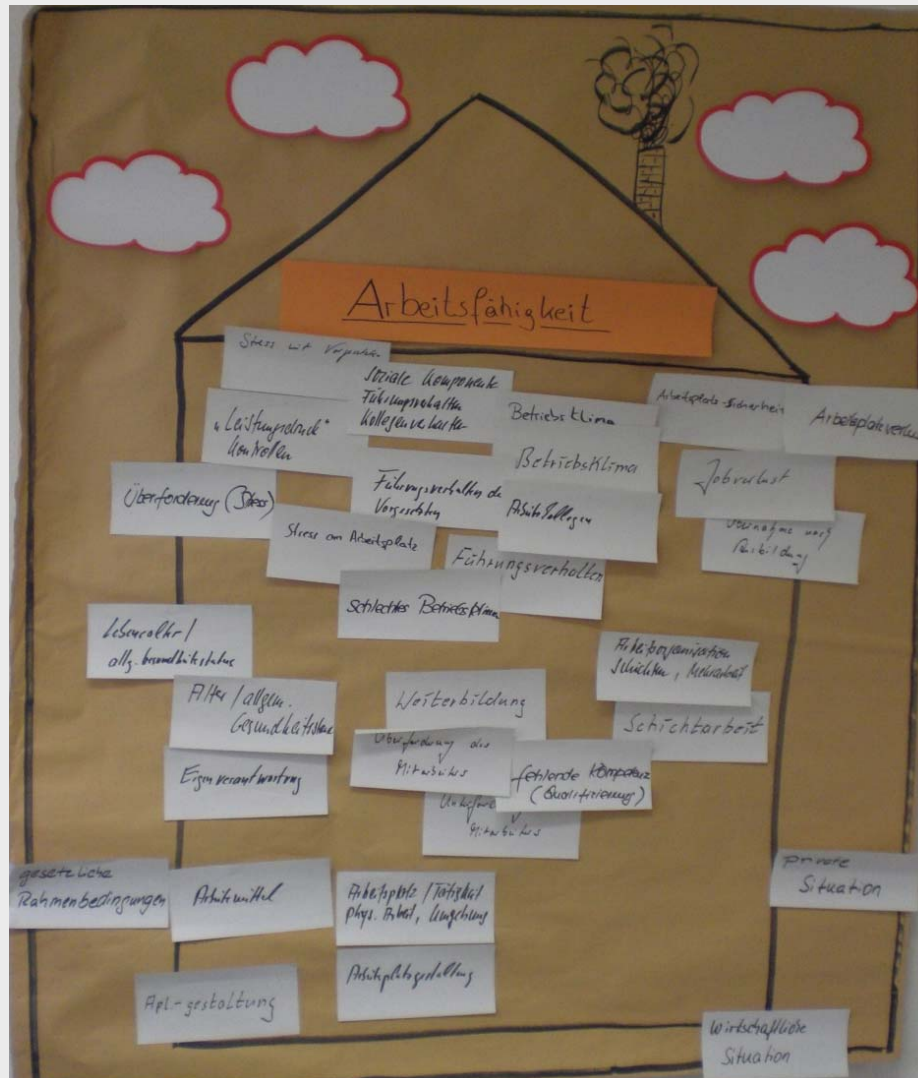 Arbeitsfähigkeit
Stress mit
soziale Komponente
Führungsverhalten
Kollegenverhalten
Betriebsklima
Arbeitsplatz-Sicherheit
Arbeitsplatzverlus
"Leistungsdruck"
Kontrollen
Betriebsklima
Jobverlust
Überforderung (Stress)
Führungsverhalten de
Vorgesetzten
Arbeitskollegen
Übernahme nach
Ausbildung
Stress am Arbeitsplatz
Führungsverhalten
schlechtes Betriebsklima
Lebensalter /
allg. Gesundheitsstatus
Arbeitsorganisation
Schichten, Mehrarbeit
Alter / allgem.
Gesundheitszu
Weiterbildung
Schichtarbeit
Überforderung des
Mitarbeiters
fehlende Kompetenz
(Qualifizierung)
Eigenverantwortung
Mitarbeiters
gesetzliche
Rahmenbedingungen
Arbeitsmittel
Arbeitsplatz / Tätigkeit
phys. Arbeit, Umgebung
private
Situation
Arbeitsplatzgestaltung
Apl.-gestaltung
wirtschaftliche
Situation